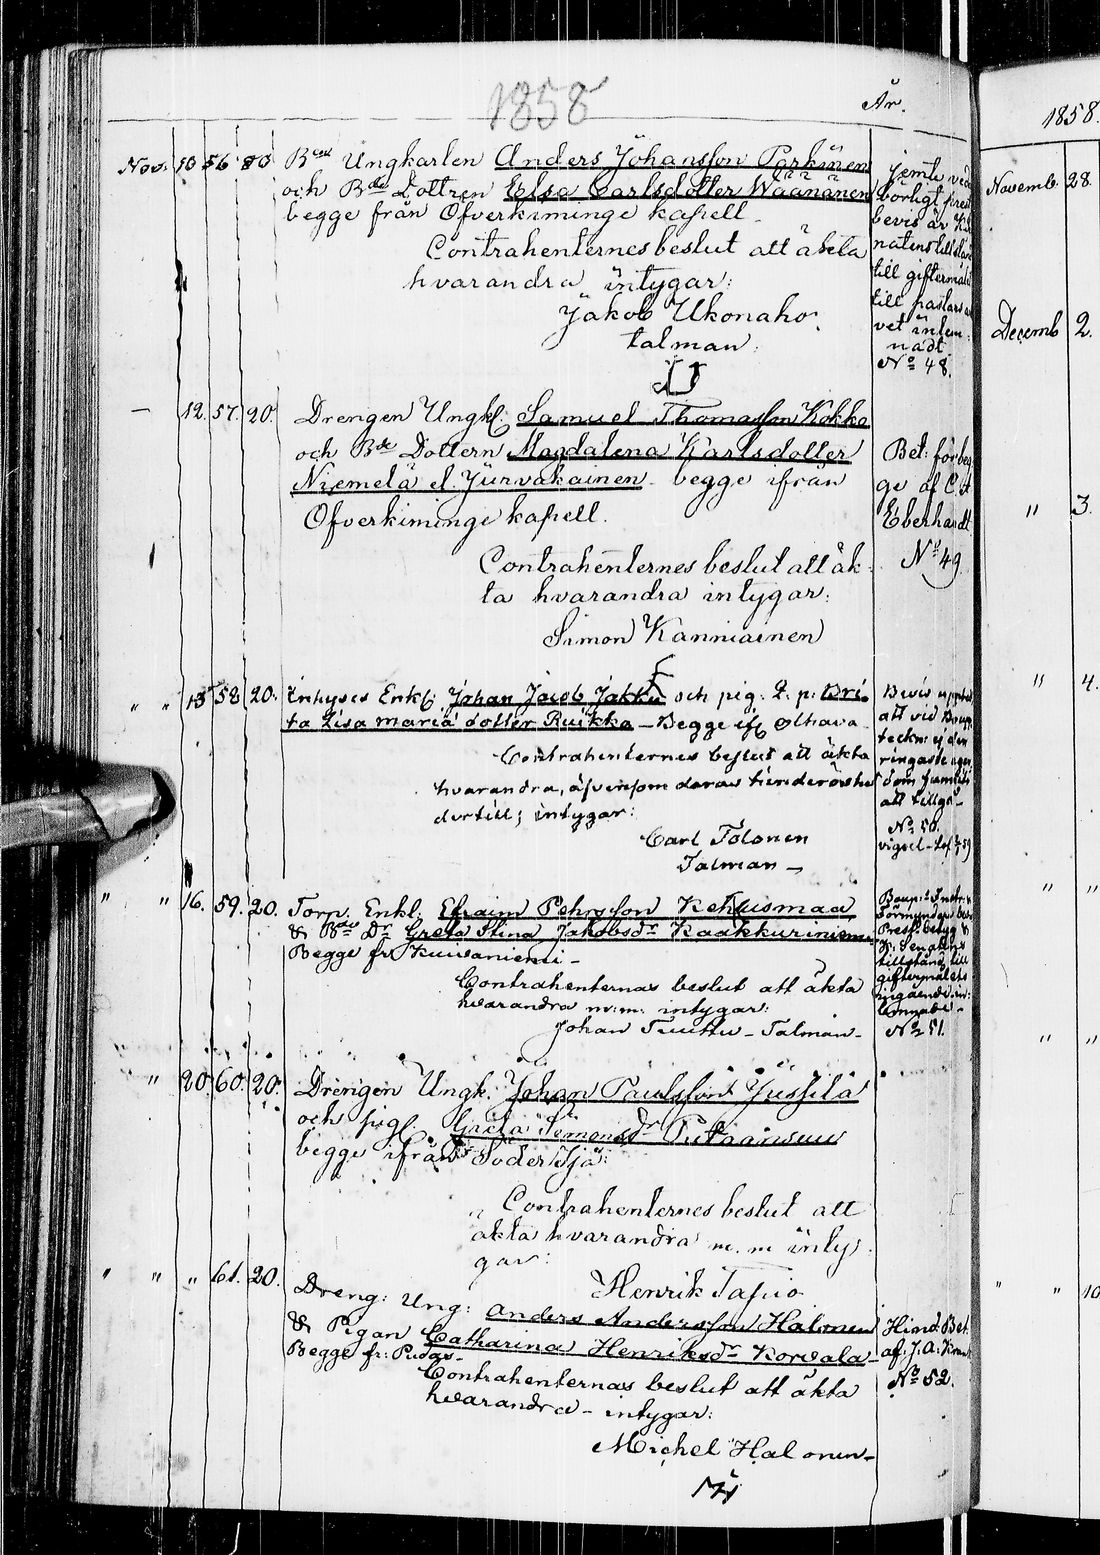 1858
År.
Nov. 10 56 20 B:son Ungkarlen Anders Johansson Parkinen
och B:de Dottren Elsa Carlsdotter Wäänänen
begge från Öfverkiminge kapell.
Contrahenternes beslut att äkta
hvarandra intygar:
Jakob Ukonaho.
talman.
Jemte ved
börligt prest
bevis är
till giftermålet
till pastors
nadt
No 48.
— 12. 57. 20. Drengen Ungk. Samuel Thomasson Kokko
och B:de Dottern Magdalena Karlsdotter
Niemelä el. Jurvakainen begge ifrån
Öfverkiminge kapell.
Contrahenternes beslut att äk-
ta hvarandra intygar:
Simon Kanniainen
Bet: för beg
ge af C. A
Eberhardt
No 49.
" " 15 58 20. Inhyses Enkl: Johan Jacob Jakku och pig: Bri
ta Lisa Maria dotter Ruikka — Begge ifr Olhava
Contrahenternes beslut att äkta
hvarandra, äfvensom deras
dertill; intygar:
Carl Tolonen
Talman —
Bevis
att vid
teckn: ej den
ringaste egen
dom funnits
att tillgå —
No 50.
" " 16. 59. 20. Torp. Enkl. Efraim Pehrsson Kehusmaa
& B:de Dr Greta Stina Jakobsdr Kaakkuriniemi
Begge fr Kuivaniemi —
Contrahenternas beslut att äkta
hvarandra m:m: intygar:
Johan Tuuttu — Talman —
Förmyndare
tillstånd till
giftermålets
ingående in:
No 51.
" 20. 60. 20. Drengen Ungk. Johan Paulsson Jussila
och pig. Greta Simonsdr
begge ifrån Söder Ijå:
Contrahenternes beslut att
äkta hvarandra m. m inty-
gar:
Henrik Tapio
" " " 61. 20. Dreng: Ung: Anders Andersson Halonen
& Pigan Catharina Henriksdr Korvala —
Begge fr: Pudas —
Contrahenternas beslut att äkta
hvarandra — intygar:
Michel Halonen —
Hind: Bet.
af: J. A.
No 52.
1858.
Novemb. 28.
Decemb 2.
" 3.
" 4.
" "
" "
" " 10